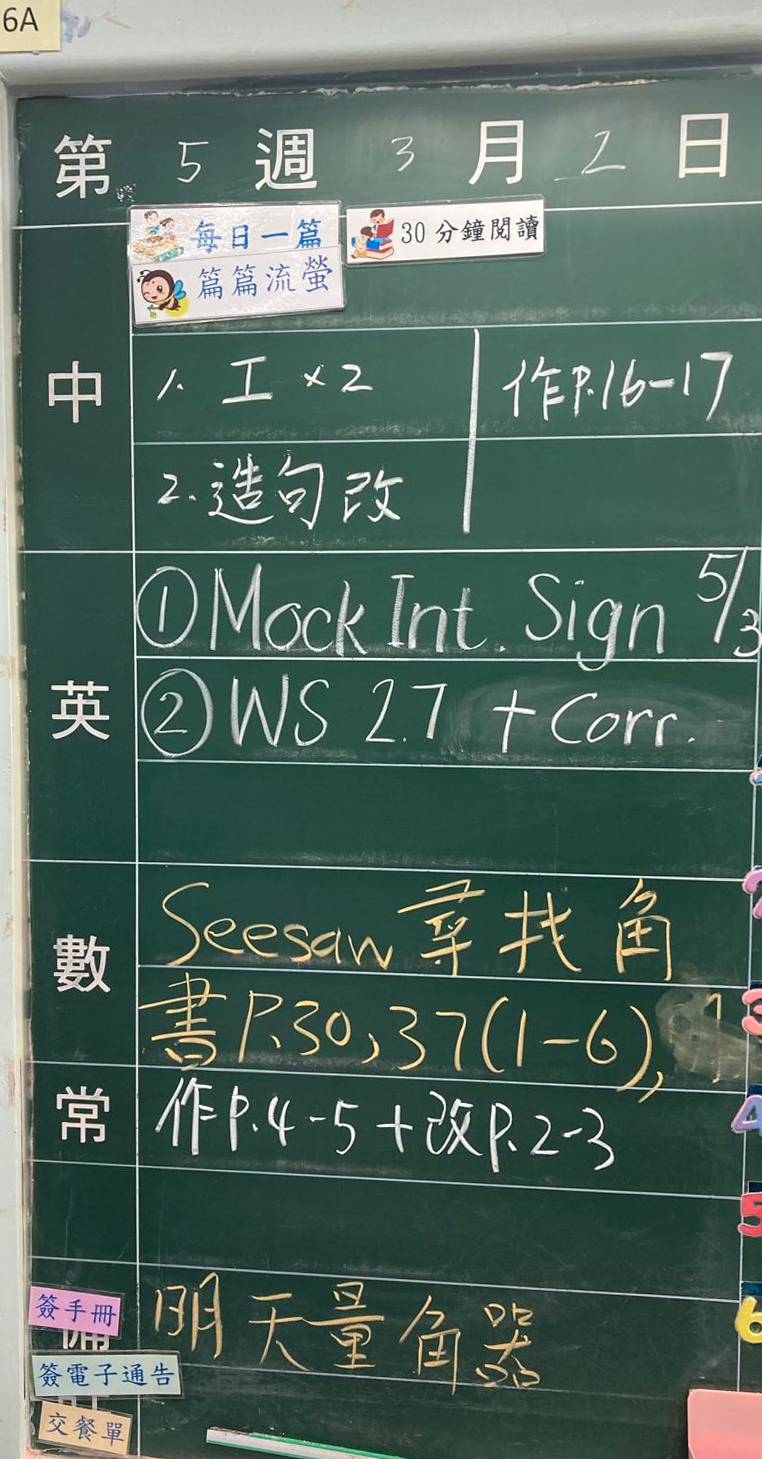 6A
第 5 週 3 月 2 日
每日一篇
30分鐘閱讀
篇篇流螢
中
1. 工 ×2
作P.16-17
2. 造句改
英
① Mock Int. Sign 5/3
② WS 2.7 + Corr.
數
Seesaw 尋找角
書P.30,37(1-6),
常
作P.4-5+改P.2-3
簽手冊
備
明天量角器
簽電子通告
交餐單
3
4
5
6